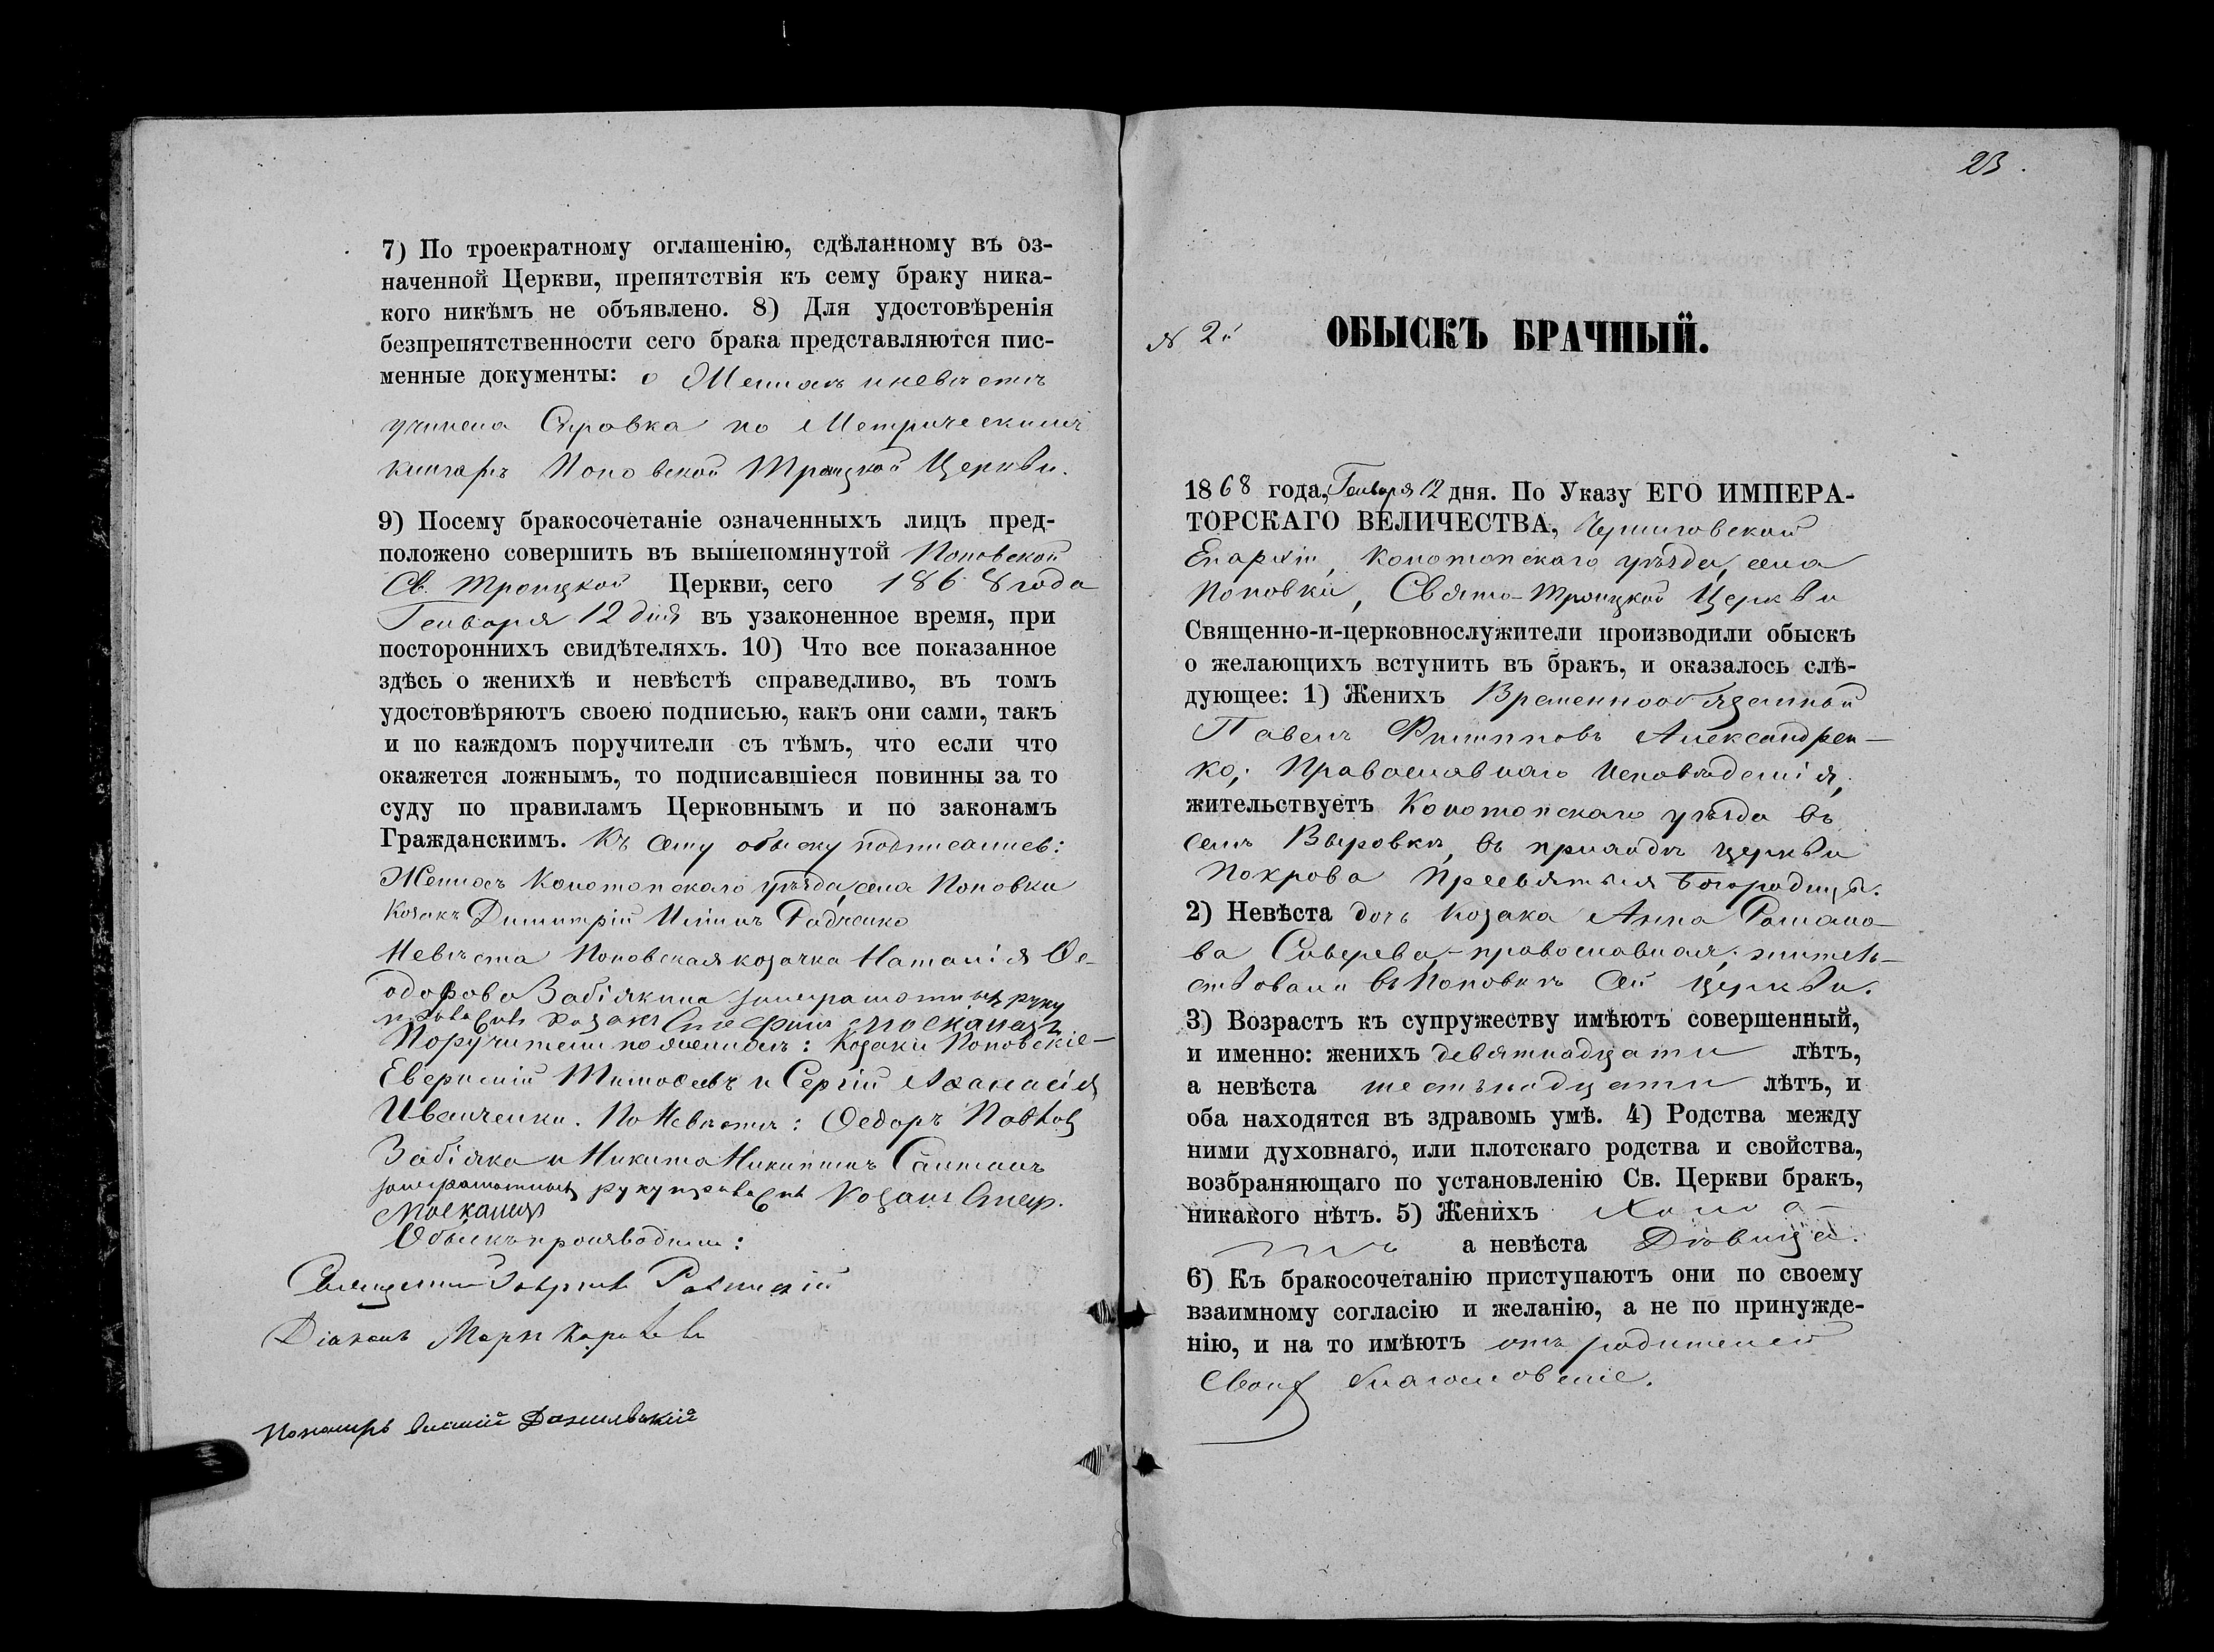 7) По троекратному оглашенію, сдѣланному въ оз-
наченной Церкви, препятствія къ сему браку ника-
кого никѣмъ не объявлено. 8) Для удостовѣренія
безпрепятственности сего брака представляются пис-
менные документы: о Женихѣ и невѣстѣ
учинена Справка по Метрическимъ
книгахъ Поповской Троицкой Церкви.
9) Посему бракосочетаніе означенныхъ лицъ пред-
положено совершить въ вышепомянутой Поповской
Св. Троицкой Церкви, сего 1868 года
Генваря 12 дня въ узаконенное время, при
постороннихъ свидѣтеляхъ. 10) Что все показанное
здѣсь о женихѣ и невѣстѣ справедливо, въ томъ
удостовѣряютъ своею подписью, какъ они сами, такъ
и по каждомъ поручители съ тѣмъ, что если что
окажется ложнымъ, то подписавшіеся повинны за то
суду по правиламъ Церковнымъ и по законамъ
Гражданскимъ. Къ сему обыску подписались:
Женихъ Конотопскаго уѣзда, села Поповки
Козакъ Димитрій Радченко
Невѣста Поповская козачка Наталія Ѳе-
одорова Забіякина руку
козакъ
Поручители по Женихѣ: Козаки Поповскіе—
Тимоѳеевъ и Сергій Аѳанасія
Иванченки. По Невѣстѣ: Ѳедоръ Павловъ
Забіяка и Никита Никитинъ
руку козакъ
Обыскъ производили:
Священникъ
Діаконъ Маркъ
Пономарь Данилевскій
23.
№ 2й
ОБЫСКЪ БРАЧНЫЙ.
1868 года, Генваря 12 дня. По Указу ЕГО ИМПЕРА-
ТОРСКАГО ВЕЛИЧЕСТВА, Черниговской
Епархіи, Конотопскаго уѣзда, села
Поповки, Свято-Троицкой Церкви
Священно-и-церковнослужители производили обыскъ
о желающихъ вступить въ бракъ, и оказалось слѣ-
дующее: 1) Женихъ Временнообязанный
Павелъ Филипповъ Александрен—
ко; Православнаго Исповѣданія,
жительствуетъ Конотопскаго уѣзда въ
селѣ Выровкѣ, въ приходѣ церкви
Покрова Пресвятыя Богородицы.
2) Невѣста дочь Козака Анна Романо—
ва Саверева—православная, житель—
ствовала въ Поповкѣ сей церкви.
3) Возрастъ къ супружеству имѣютъ совершенный,
и именно: женихъ девятнадцати лѣтъ,
а невѣста шестьнадцати лѣтъ, и
оба находятся въ здравомъ умѣ. 4) Родства между
ними духовнаго, или плотскаго родства и свойства,
возбраняющаго по установленію Св. Церкви бракъ,
никакого нѣтъ. 5) Женихъ Холос—
тъ а невѣста Дѣвица.
6) Къ бракосочетанію приступаютъ они по своему
взаимному согласію и желанію, а не по принужде-
нію, и на то имѣютъ отъ родителей
своихъ благословеніе.